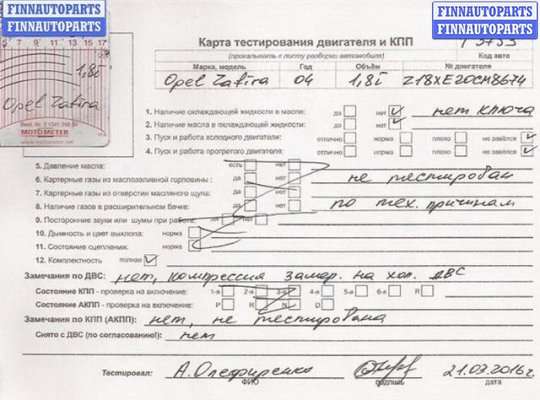 FINNAUTOPARTS
FINNAUTOPARTS
FINNAUTOPARTS
FINNAUTOPARTS
5 7 9 11 13 15 17
1,8i
Opel Zafira
MOTOMETER
Карта тестирования двигателя и КПП
(прикольнуть к листу разборки автомобиля)
Код авто
Марка, модель Год Объём № двигателя
Opel Zafira 04 1,8i Z18XE20CM8674
1. Наличие охлаждающей жидкости в масле: да нет нет ключа
2. Наличие масла в охлаждающей жидкости: да нет
3. Пуск и работа холодного двигателя: отлично норма плохо не завёлся
4. Пуск и работа прогретого двигателя: отлично норма плохо не завёлся
5. Давление масла: есть нет
6. Картерные газы из маслозаливной горловины: да нет не тестирован
7. Картерные газы из отверстия масляного щупа: да нет
8. Наличие газов в расширительном бачке: да нет по тех. причинам
9. Посторонние звуки или шумы при работе: да нет
10. Дымность и цвет выхлопа: норма
11. Состояние сцепления: норма
12. Комплектность полная
Замечания по ДВС: нет, компрессия замер. на хол. ДВС
Состояние КПП - проверка на включение: 1-я 2-я 3-я 4-я 5-я 6-я R
Состояние АКПП - проверка на включение: P R N D
Замечания по КПП (АКПП): нет, не тестирована
Снято с ДВС (по согласованию!): нет
Тестировал: А. Олефиренко 21.03.2016г.
ФИО подпись дата